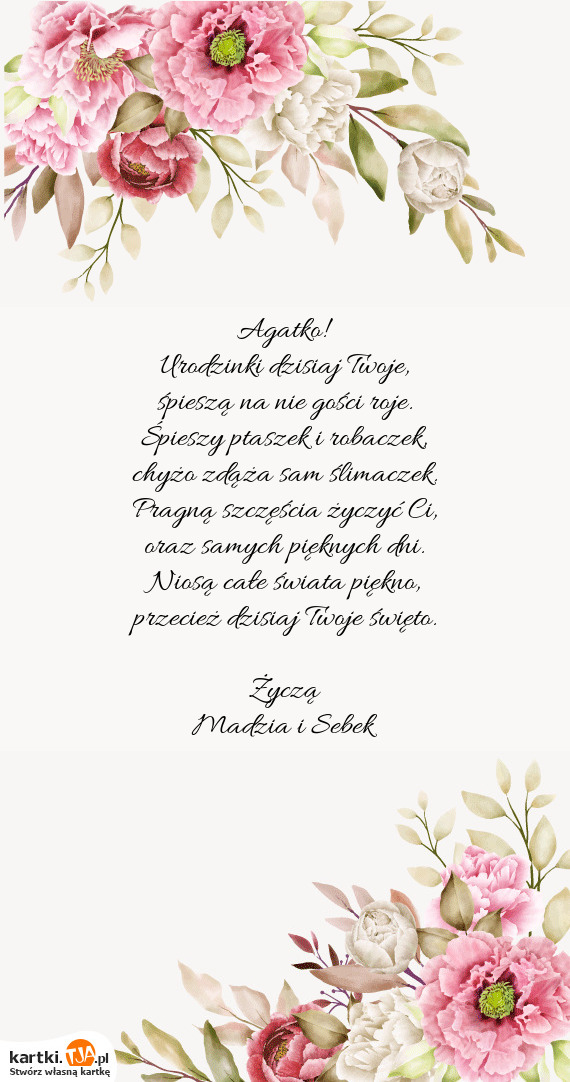 Agatko!
Urodzinki dzisiaj Twoje,
śpieszą na nie gości roje.
Śpieszy ptaszek i robaczek,
chyżo zdąża sam ślimaczek.
Pragną szczęścia życzyć Ci,
oraz samych pięknych dni.
Niosą całe świata piękno,
przecież dzisiaj Twoje święto.
Życzą
Madzia i Sebek
kartki.TJA.pl
Stwórz własną kartkę